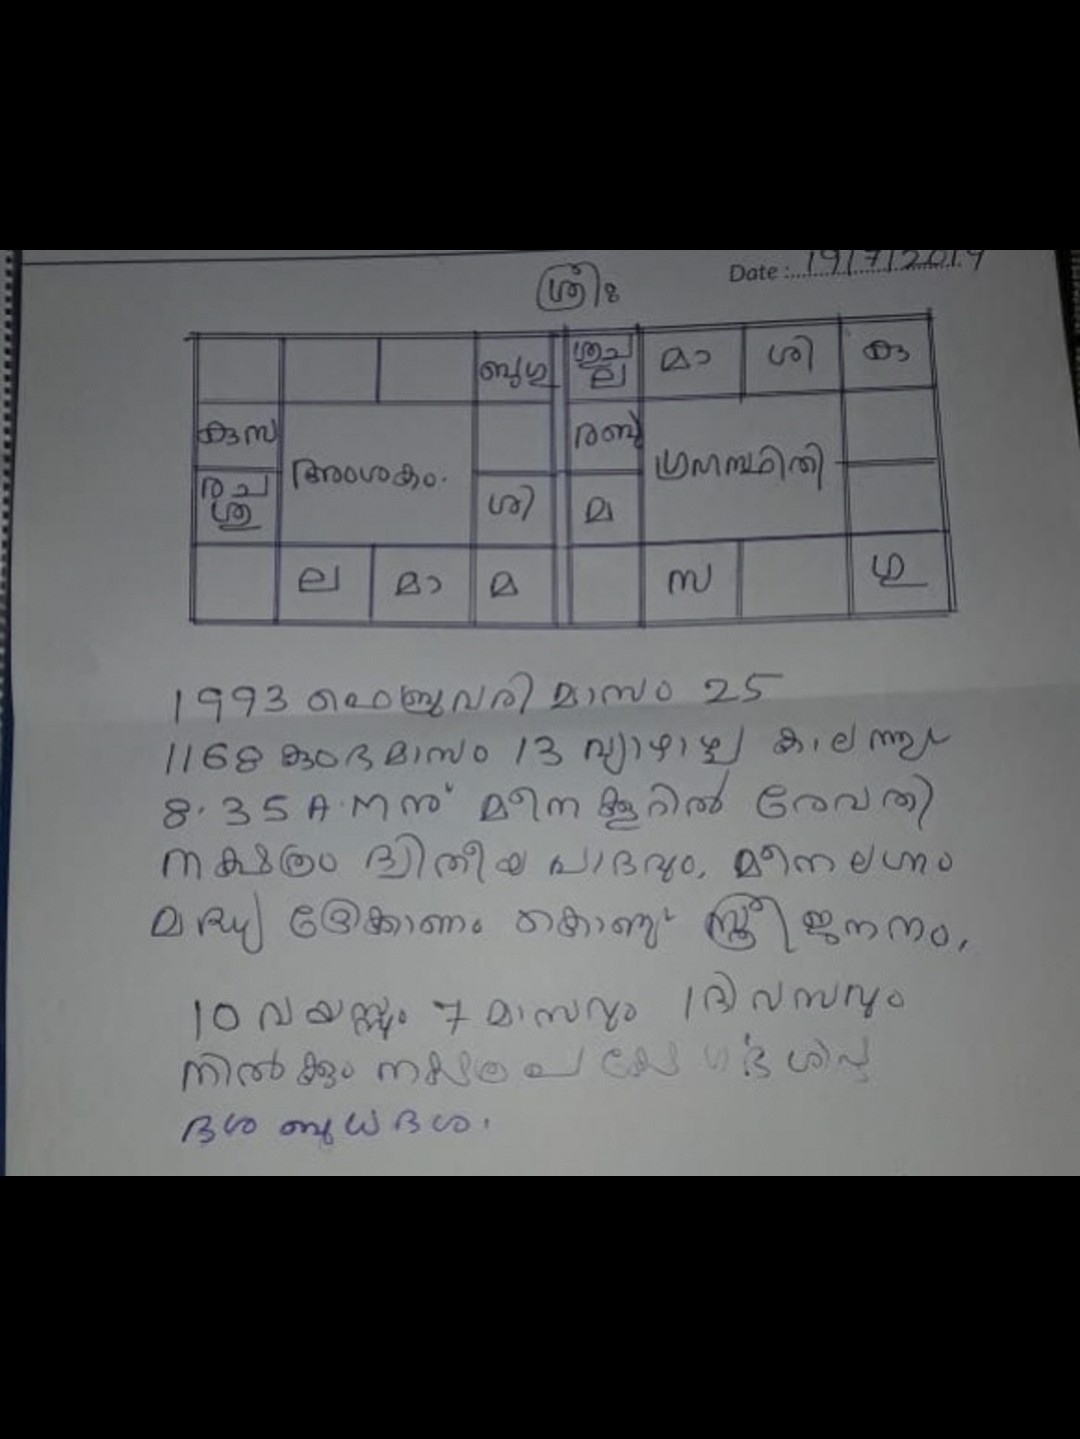 Date :..19/7/2019
ശ്രീഃ
ബുഗു ശുച ല മാ ശി കു
കുസ അംശകം. രബു ഗ്രഹസ്ഥിതി
രച ശു ശി മ
ല മാ മ സ ഗു
1993 ഫെബ്രുവരി മാസം 25
1168 കുംഭമാസം 13 വ്യാഴാഴ്ച കാലത്ത്
8.35 A.M ന് മീനക്കൂറിൽ രേവതി
നക്ഷത്രം ദ്വിതീയ പാദവും, മീനലഗ്നം
മദ്ധ്യ ദ്രേക്കാണം കൊണ്ട് സ്ത്രീജനനം,
10 വയസ്സും 7 മാസവും 1 ദിവസവും
നിൽക്കും നക്ഷത്ര
ദശ ബുധദശ.